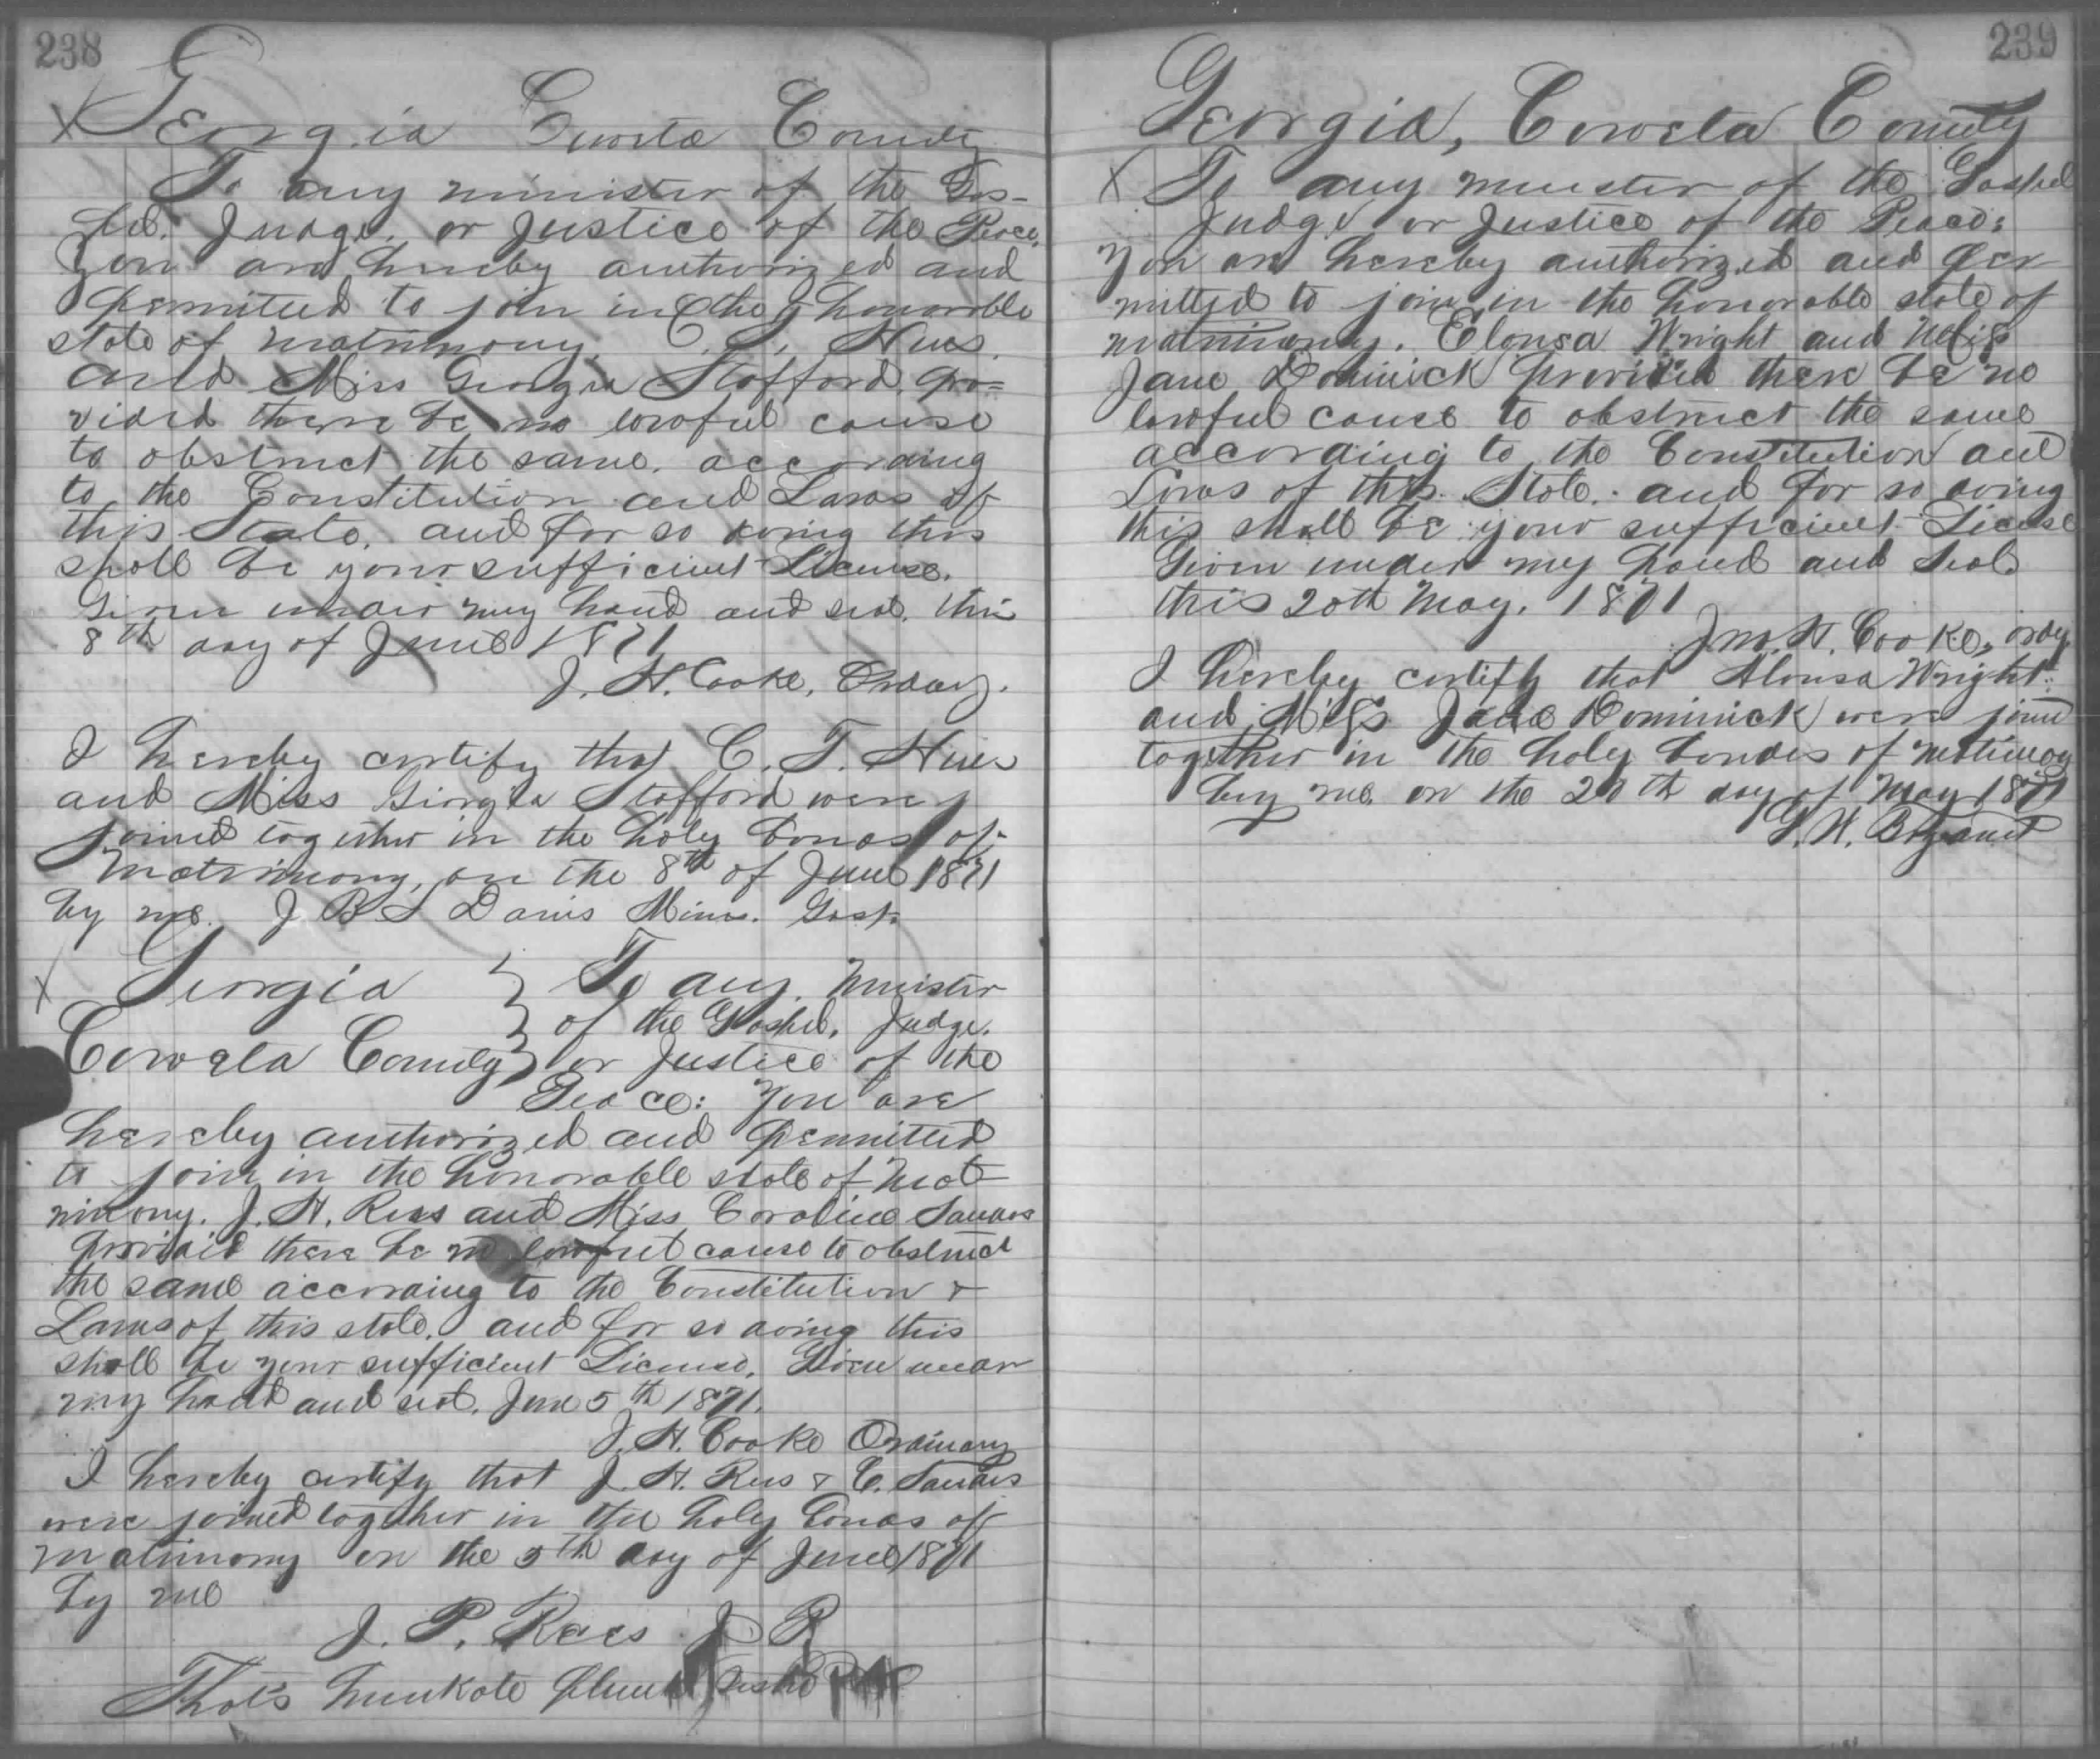 238
X Georgia Coweta County
To any minister of the Gos-
pel. Judge, or Justice of the Peace,
You are hereby authorized and
permitted to join in the honorable
state of matrimony, C. T. Hues
and Miss Georgia Stafford, pro=
vided there be no lawful cause
to obstruct the same, according
to the Constitution and Laws of
this State, and for so doing this
shall be your sufficient License.
Given under my hand and seal, this
8th day of June 1871
J. H. Cooke, Ordinary.
I hereby certify that C. T. Hues
and Miss Georgia Stafford were
joined together in the holy bonds of
matrimony, on the 8th of June 1871
by me. J B S Davis Min. Gosp.
X Georgia } To any Minister
of the Gospel, Judge,
Coweta County } or Justice of the
Peace: You are
hereby authorized and permitted
to join in the honorable state of Mat
rimony. J. H. Rees and Miss Caroline Sanders
provided there be no lawful cause to obstruct
the same according to the Constitution &
Laws of this state, and for so doing this
shall be your sufficient License, Given under
my hand and seal, June 5th 1871.
J. H. Cooke Ordinary
I hereby certify that J. H. Rees & C. Sanders
were joined together in the holy bonds of
matrimony on the 5th day of June 1871
by me
J. P. Rees J P
Thats
239
Georgia, Coweta County
X To any minister of the Gospel
Judge or Justice of the Peace:
You are hereby authorized and per
mitted to join in the honorable state of
matrimony. Elonsa Wright and Miss
Jane Dominick provided there be no
lawful cause to obstruct the same
according to the Constitution and
Laws of this State. and for so doing
this shall be your sufficient License
Given under my hand and Seal
this 20th May. 1871
Jno. H. Cooke, ordy
I hereby certify that Alonsa Wright
and Miss Jane Dominick were joined
together in the holy bondes of matrimony
by me, on the 20th day of May 1871